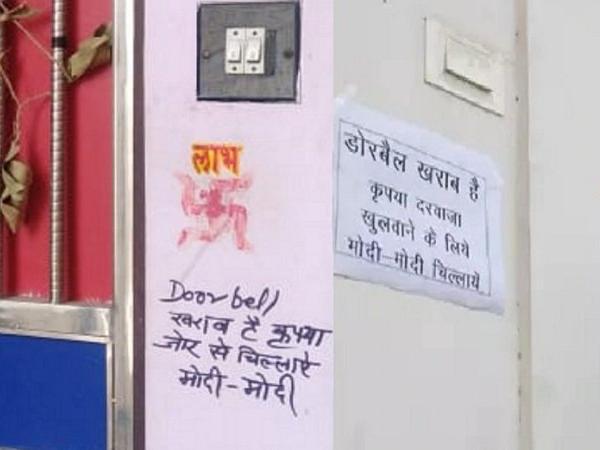 लाभ
Doorbell
खराब है कृपया
जोर से चिल्लाऐ
मोदी-मोदी
डोरबैल खराब है
कृपया दरवाजा
खुलवाने के लिये
मोदी-मोदी चिल्लायें